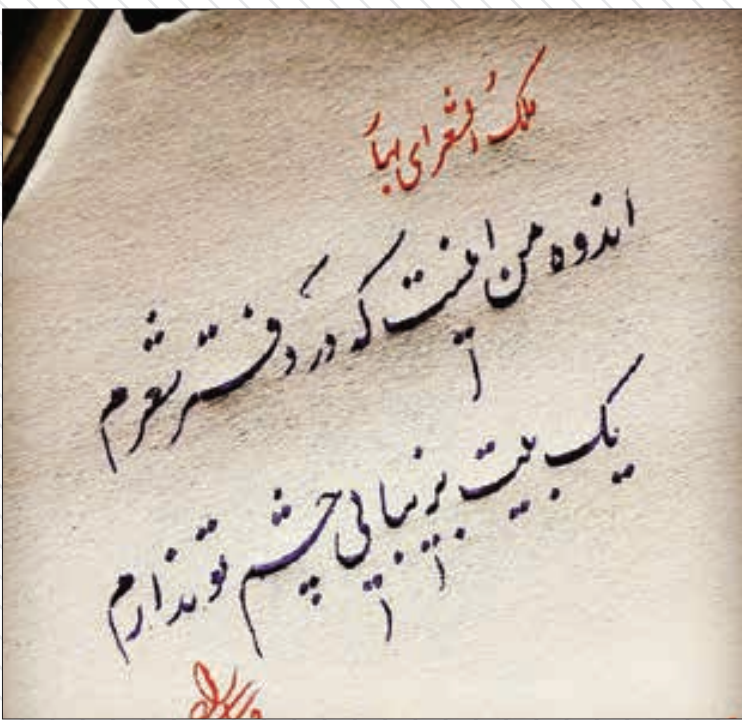 ملک الشعرای بهار
اندوه من اینست که در دفتر شعرم
یک بیت به زیبایی چشم تو ندارم